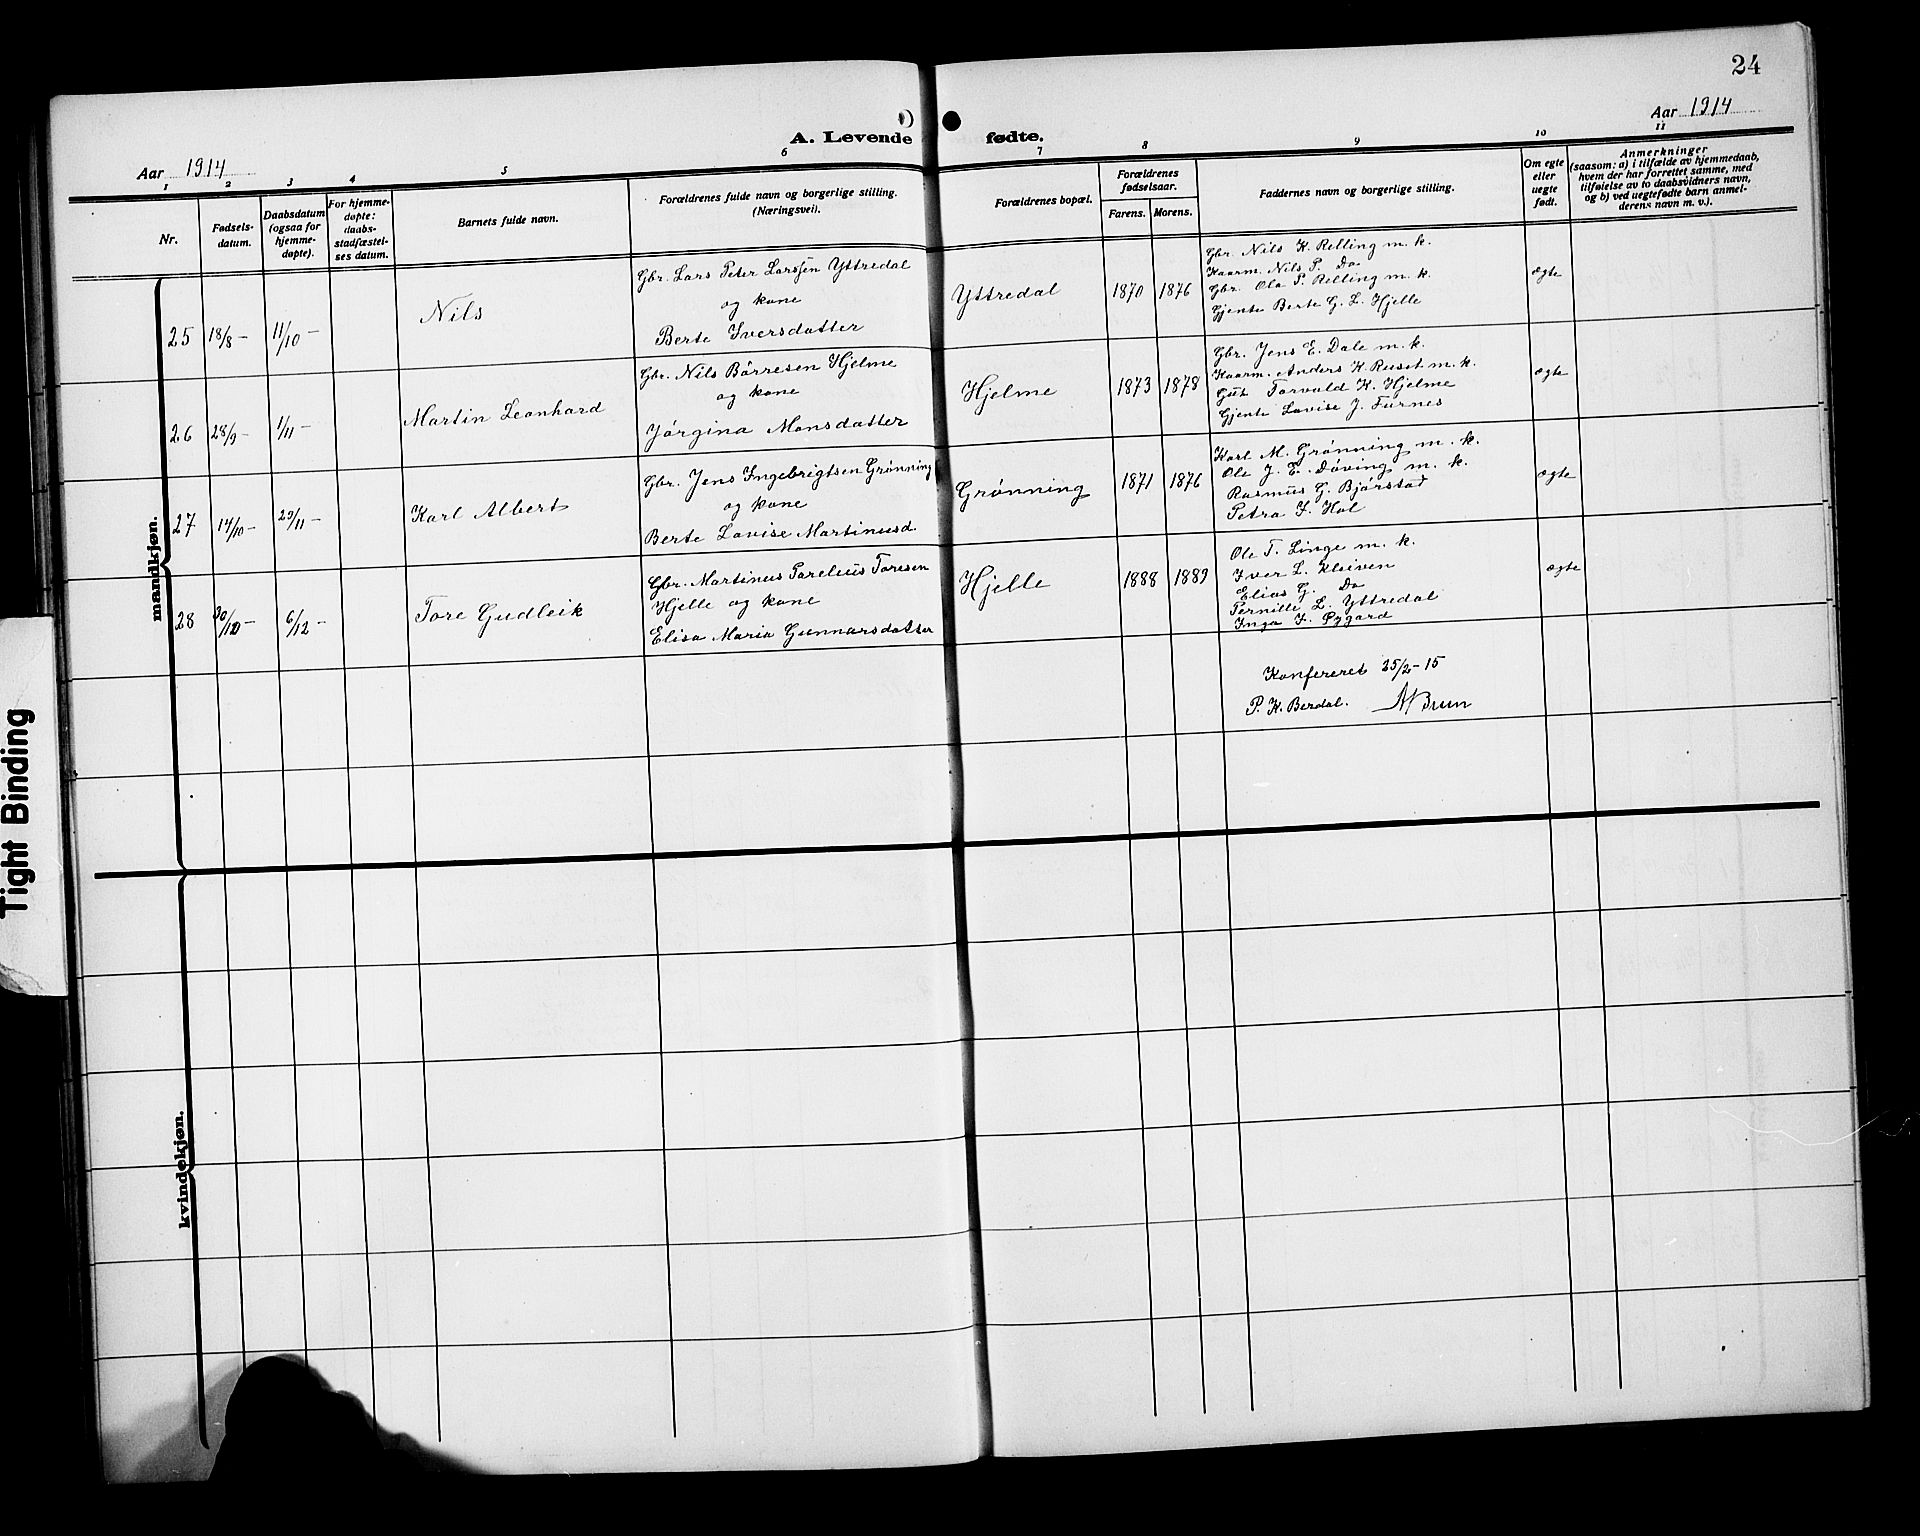 24
Aar 1914
Aar 1914
A. Levende fødte.
1 2 3 4 5 6 7 8 9 10 11
Nr.
Fødsels-
datum.
Daabsdatum
(ogsaa for
hjemme-
døpte).
For hjemme-
døpte:
daabs-
stadfæstel-
ses datum.
Barnets fulde navn.
Forældrenes fulde navn og borgerlige stilling.
(Næringsvei).
Forældrenes bopæl.
Forældrenes
fødselsaar.
Farens. Morens.
Faddernes navn og borgerlige stilling.
Om egte
eller
uegte
født.
Anmerkninger
(saasom: a) i tilfælde av hjemmedaab,
hvem der har forrettet samme, med
tilføielse av to daabsvidners navn,
og b) ved uegtefødte barn anmel-
derens navn m. v.).
mandkjøn.
25 18/8 - 11/10 -
Nils
Gbr. Lars Peter Larssen Yttredal
og kone
Berte Iversdatter
Yttredal
1870 1876
Gbr. Nils K. Relling m. k.
Kaarm. Nils P. Do
Gbr. Ola P. Relling m. k.
Gjente Berte G. L. Hjelle
ægte
26 28/9 - 1/11 -
Martin Leonhard
Gbr. Nils Børresen Hjelme
og kone
Jørgina Monsdatter
Hjelme
1873 1878
Gbr. Jens E. Dale m. k.
Kaarm. Anders K. Ruset m. k.
Gut Torvald K. Hjelme
Gjente Lovise J. Furnes
ægte
27 14/10 - 29/11 -
Karl Albert
Gbr. Jens Ingebrigtsen Grønning
og kone
Berte Lovise Martinusd.
Grønning
1871 1876
Karl M. Grønning m. k.
Ole J. E. Døving m. k.
Rasmus G. Bjørstad
Petra I. Hol
ægte
28 30/10 - 6/12 -
Tore Gudleik
Gbr. Martinus Torelius Toresen
Hjelle og kone
Elisa Maria Gunnarsdatter
Hjelle
1888 1889
Ole T. Linge m. k.
Iver L. Kleiven
Elias G. Do
Pernille L. Yttredal
Inga I. Øygard
ægte
Konfereret 25/2-15
P. K. Berdal. Brun
kvindekjøn.
Tight Binding